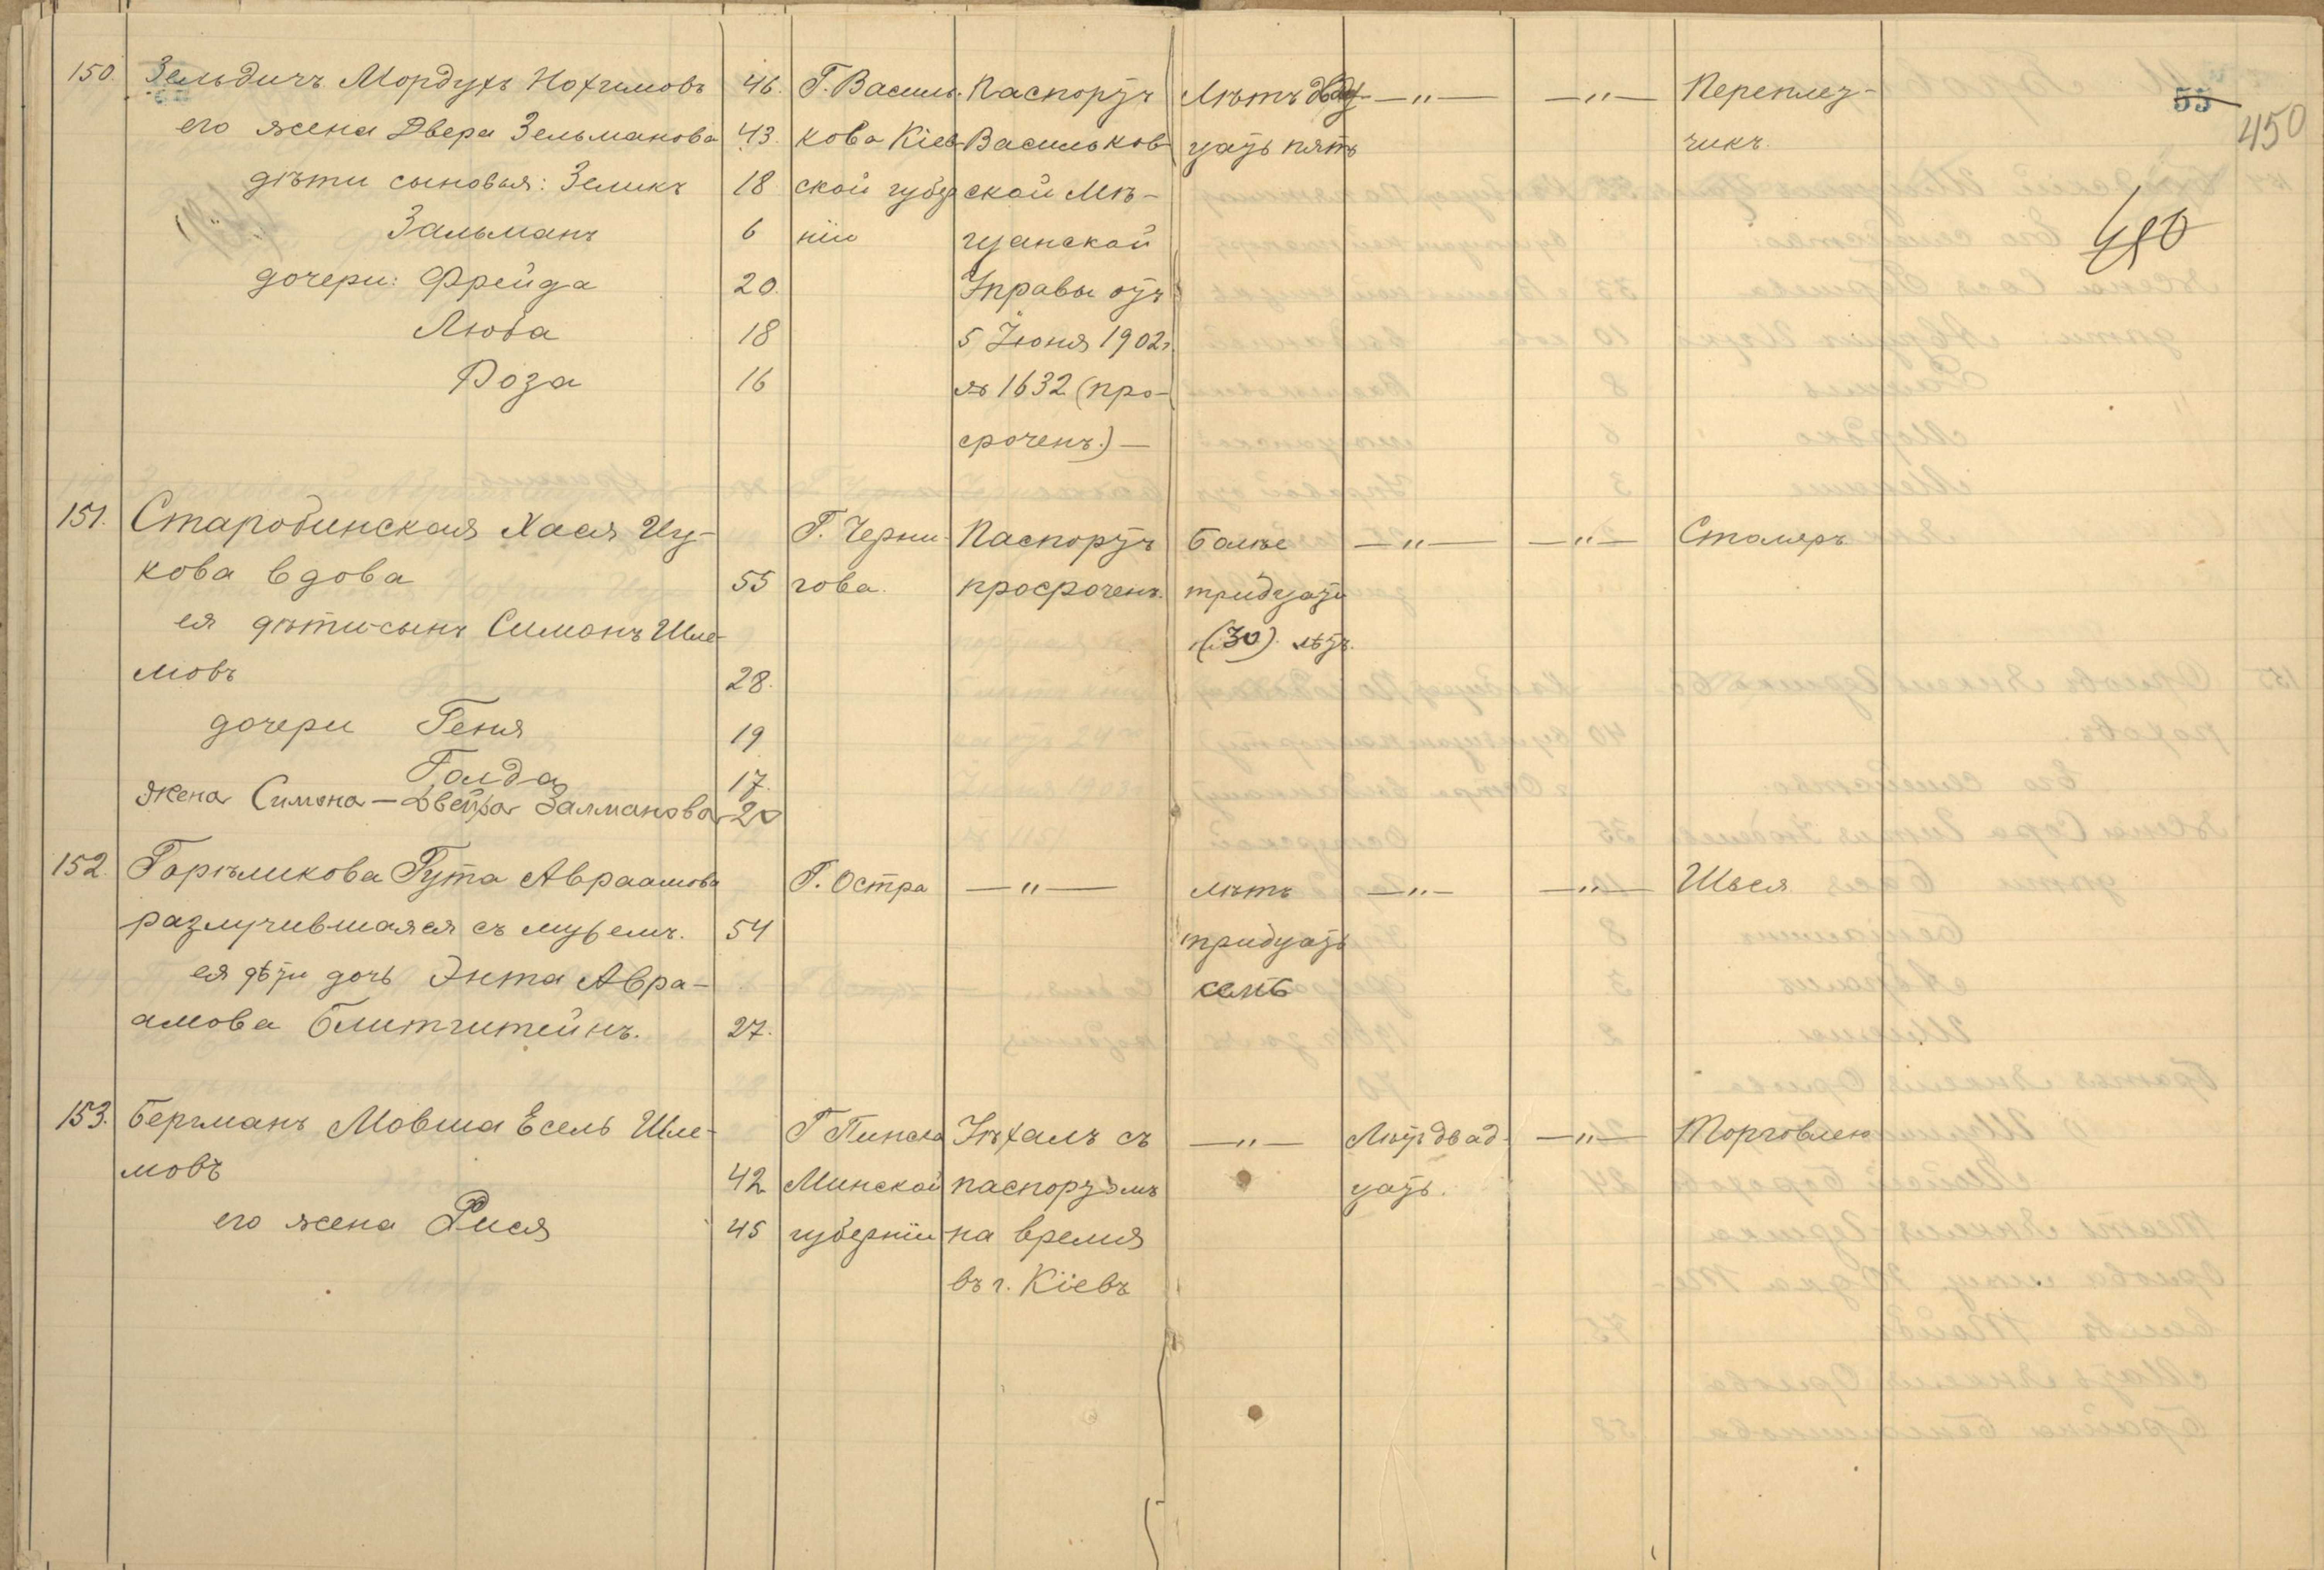 150. Зельдичъ Мордухъ Нохимовъ 46. Г. Василь- Паспортъ Лѣтъ двад- —"— —"— Переплет-
55
его жена Двера Зельманова 43. кова Кіев- Васильков- цать пять чикъ.
450
дѣти сыновья: Зеликъ 18 ской губер ской Мѣ-
Зальманъ 6 ніи щанской
450
дочери: Фрейда 20. Управы отъ
Люба 18 5 Іюня 1902 г.
Роза 16 № 1632 (про-
сроченъ.) —
151. Старобинская Хася Иц- Г. Черни- Паспортъ Болѣе —"— —"— Столяръ
кова вдова 55 гова. просрочен. тридцати
ея дѣти-сынъ Симонъ Шле- (30) лѣтъ.
мовъ 28.
дочери Геня 19
Голда 17.
жена Симона — Двейра Залманова 20
152. Горѣликова Гута Авраамова Г. Остра —"— лѣтъ —"— —"— Швея
разлучившаяся съ мужемъ. 54 тридцать
ея дѣти дочь Энта Авра- семь
амова Блитштейнъ. 27.
153. Бергманъ Мовша Есель Шле- Г Пинска Уѣхалъ съ —"— Лѣтъ двад- —"— Торговлею
мовъ 42 Минской паспортомъ цать.
его жена Рися 45 губерніи на время
въ г. Кіевъ